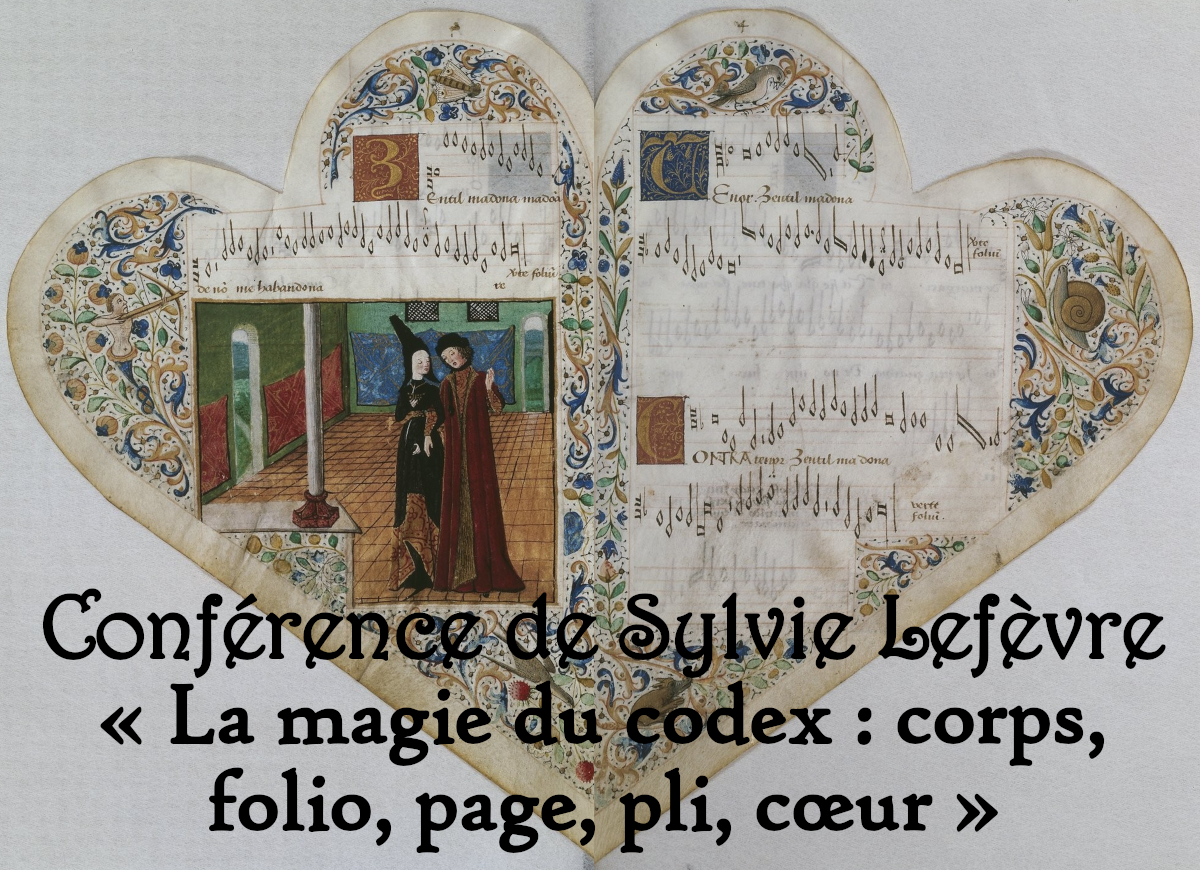 Z
Entil madona madoa
de nō me habandona
te
Xte foliū
T
Enor Zentil madona
Xte
foliū
C
ONTRA tenor Zentil madona
verte
foliū.
Conférence de Sylvie Lefèvre
« La magie du codex : corps,
folio, page, pli, cœur »